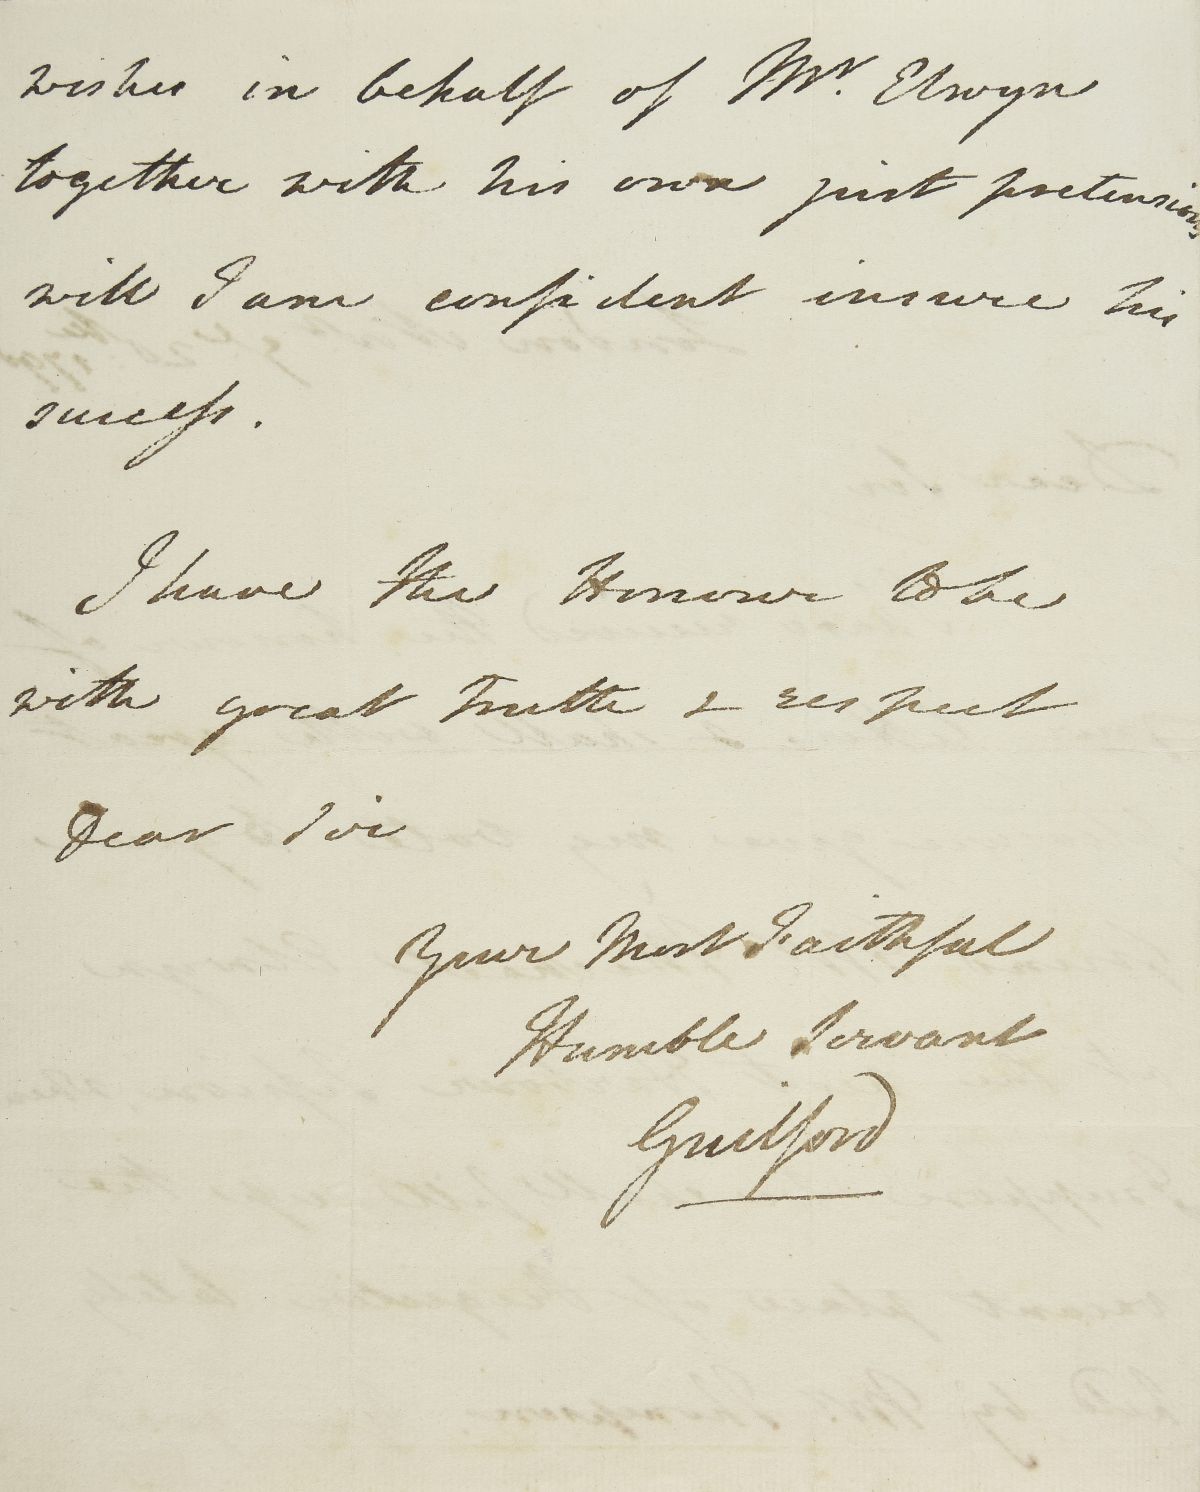 wishes in behalf of Mr. Elwyn
together with his own just pretensions
will I am confident insure his
success.
I have the Honour to be
with great Truth & respect
Dear Sir
Your Most Faithful
Humble Servant
Guilford